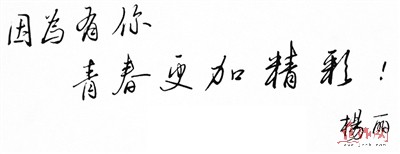 因為有你
青春更加精彩！
楊丽